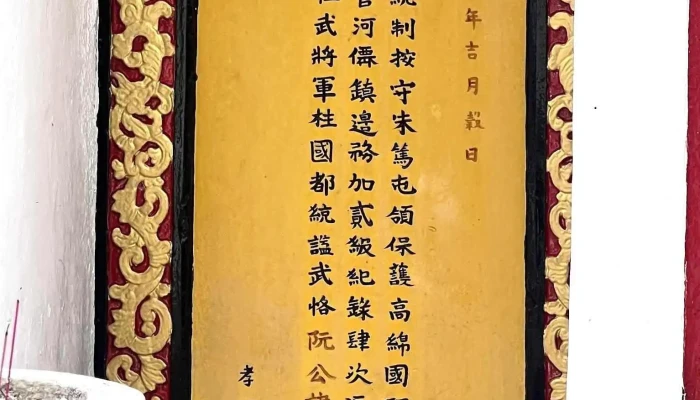 年吉月穀日
統制按守朱篤屯領保護高綿國
管河僊鎮邊務加貳級紀錄肆次
武將軍柱國都統謚武恪阮公
孝